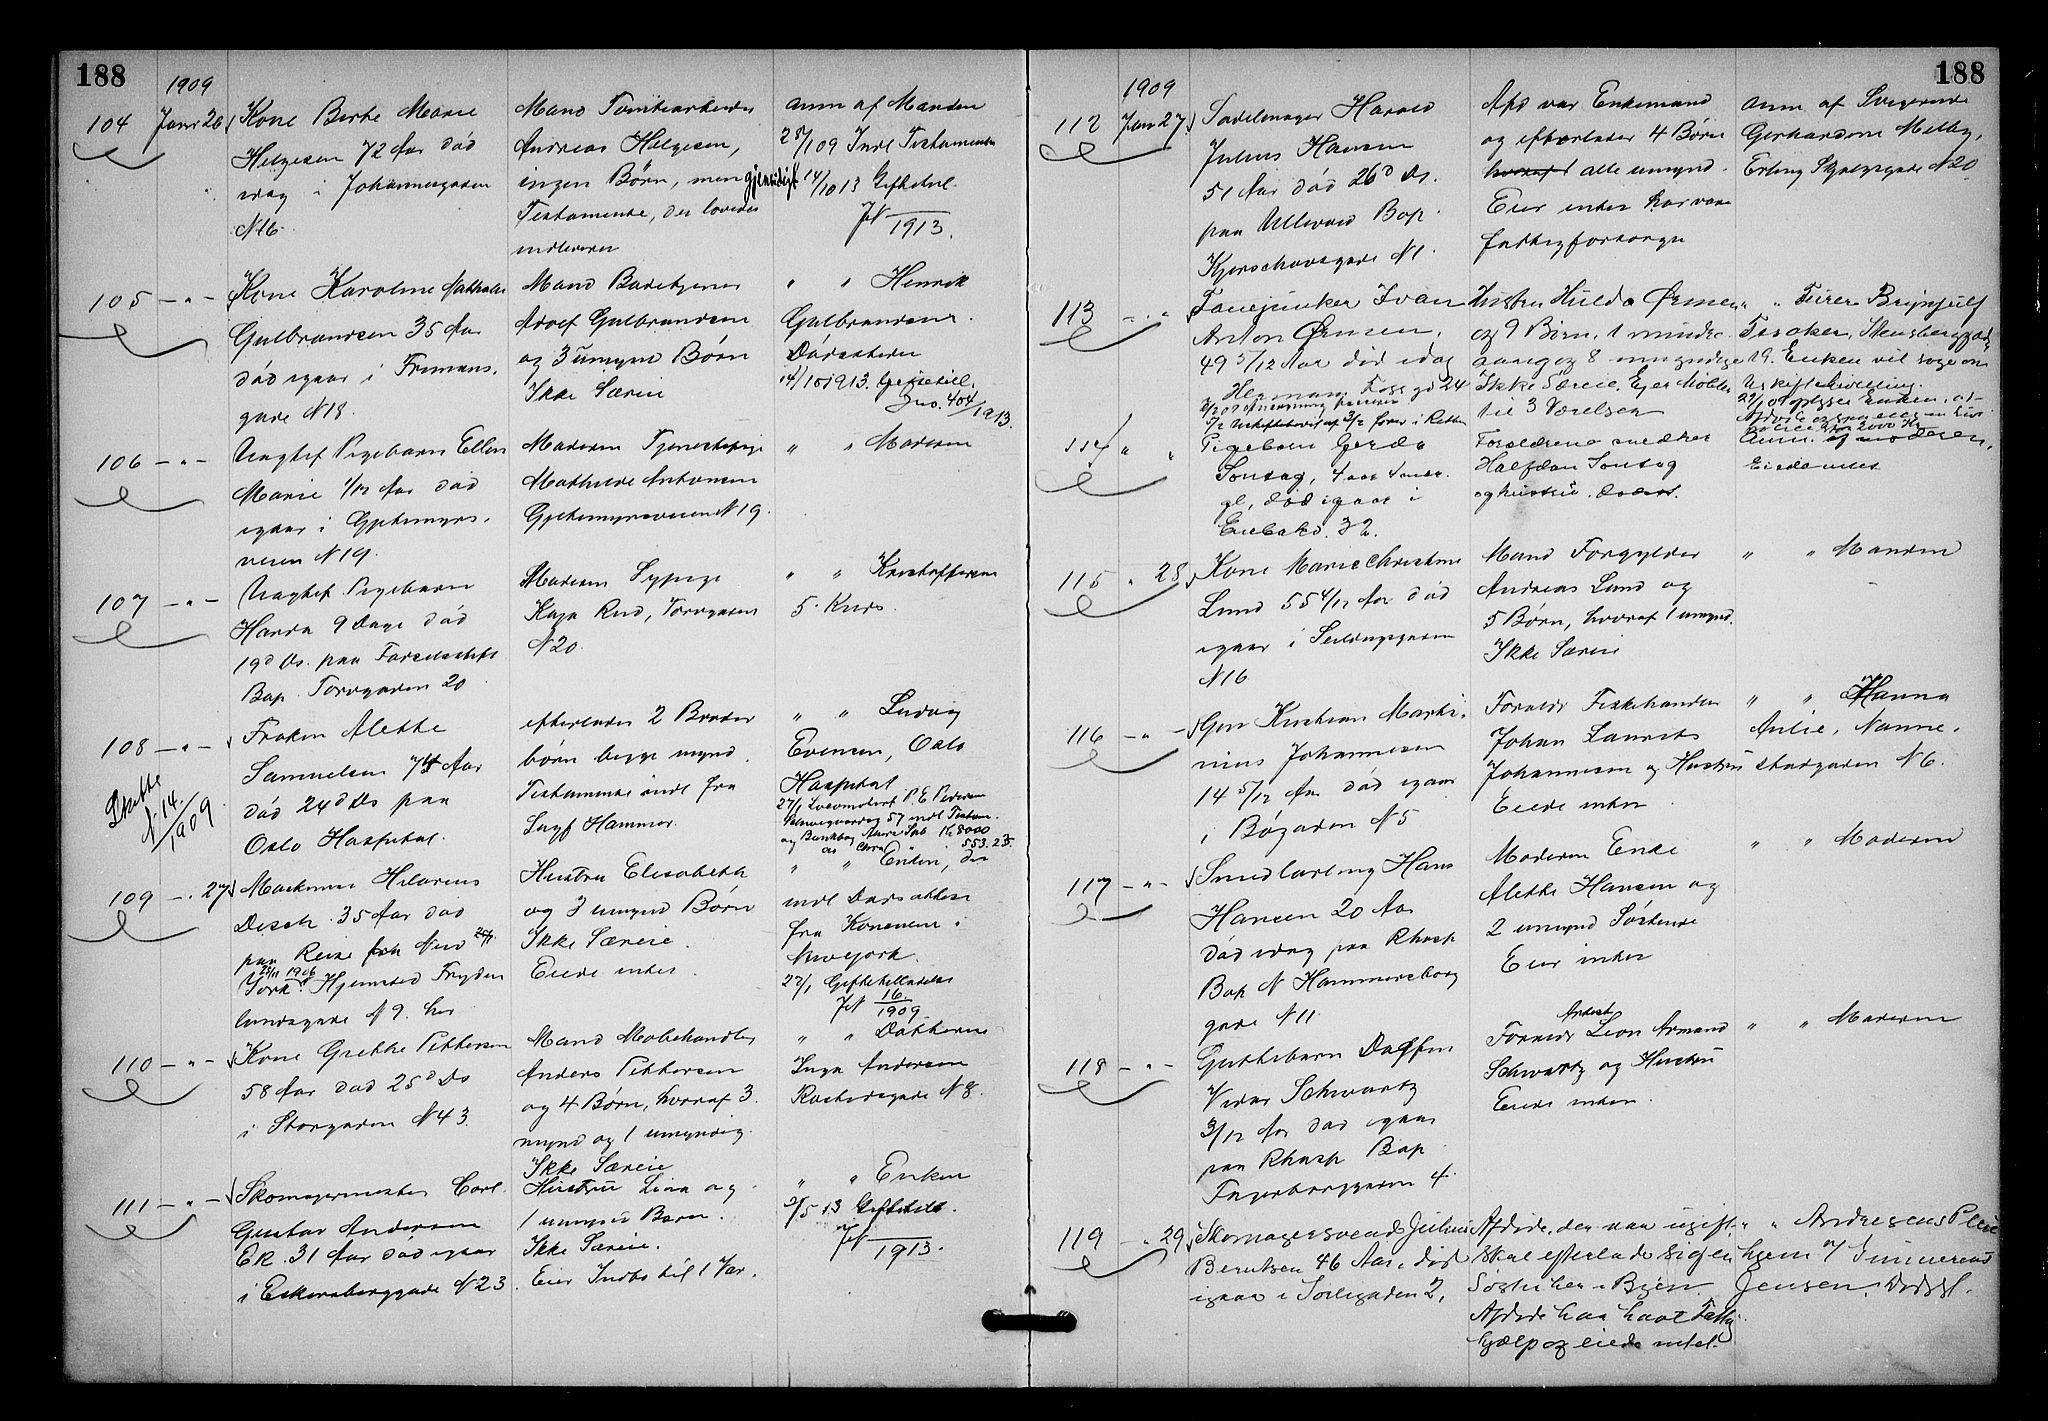 188
1909
104 Janr 26 Kone Berte Marie
Helgesen 72 Aar død
idag i Johannesgaden
N 16.
Mand Tomtearbeider
Andreas Helgesen,
ingen Børn, men gjensidigt
Testamente, der loves
indleveres
anm af Manden
28/1 09 Indl Testamente
14/10 13 Giftetul.
JN 1913.
105 - " - Kone Karoline Mathilde
Gulbrandsen 35 Aar
død igaar i Frimans
gade N 18.
Mand
Adolf Gulbrandsen
og 3 umynd Børn
Ikke Særeie
" " Henrik
Gulbrandsen.
Dødsattester
14/10 1913. Giftetill.
Jno. 404/1913.
106 - " - Uægtef Pigebarn Ellen
Marie 1/12 Aar død
igaar i Gjetemyrs
veien N 19.
Moderen Tjenestepige
Mathilde Antonsen
Gjetemyrsveien N 19.
" " Moderen
107 - " - Uægtef Pigebarn
Harda 9 Dage død
19d Ds. paa Fødselsstift
Bap. Torvgaden 20
Moderen Sypige
Kaja Rud, Torvgaden
N 20
" " Kristoffersen
5. Kreds.
108 - " - Frøken Alette
Samuelsen 74 Aar
død 24d Ds paa
Oslo Hospital.
Skifte
N. 14.
1909.
efterlader 2 Broder
børn begge mynd.
Testamente indl fra
Sagf Hammer.
" " Ludvig
Evensen, Oslo
Hospital
109 - " 27 Maskinist Hilarius
Desch. 35 Aar død
paa Reise fra New
York. Hjemsted Fryden
lundsgade N 9. her
Hustru Elisabeth
og 3 umynd Børn
Ikke Særeie.
Eiede intet.
" " Enken, der
indl Dødsattest
fra Konsulen i
Newyork.
27/1 Giftetilladelse
JN 16/1909
110 - " - Kone Grethe Pettersen
58 Aar død 25d Ds
i Storgaden N 43.
Mand Møbelhandler
Anders Pettersen
og 4 Børn, hvoraf 3
mynd og 1 umyndig.
Ikke Særeie
" " Datteren
Inga Andersen
N 8.
111 - " - Skomagermester Carl
Gustav Andersen
Ek. 31 Aar død igaar
i Eckersberggade N 23
Hustru Lina og
1 umynd Barn.
Ikke Særeie.
Eier Indbo til 1 Vær.
" " Enken
2/5 13 Giftetill.
JN 1913.
188
1909
112 Janr 27 Sadelmager Harald
Julius Hansen
51 Aar død 26d Ds.
paa Ullevaal Bap.
Kjerschowsgade N 1.
Afd var Enkemand
og efterlader 4 Børn
hvoraf alle umynd.
Eier intet har været
fattigforsørget
anm af Svigerinde
Gerhardine Melby,
Erling Skjalgsgade N 20
113 - " - Fanejunker Ivan
Anton Ørmen,
49 5/12 Aar død idag
Herman Foss gd 24
Hustru Hulda Ørmen
og 9 Børn, 1 minder
aarig og 8 umyndige
Ikke Særeie. Ejer Møbler
til 3 Værelser
" " Furer Brynjulf
Tesaker, Stensberggad
19. Enken vil søge om
Uskiftebevilling.
114 " " Pigebarn Gerda
Sontag, 4 aar
gl, død igaar i
32.
Forældrene snedker
Halfdan Sontag
og hustru.
Anm. af moderen,
Eiede intet
115 " 28 Kone Marie Christine
Lund 55 4/12 Aar død
igaar i Seilduksgaden
N 16
Mand Forgylder
Andreas Lund og
5 Børn, hvoraf 1 umynd.
Ikke Særeie
" " Manden
116 - " - Gut Kristian Marti-
nius Johannesen
14 5/12 Aar død igaar
i Bøgaden N 5
Foreldr Fiskehandler
Johan Laurits
Johannesen og Hustru
Eiede intet
" " Hanna
Anlie, Nanne-
stadgaden N 6.
117 - " - Smedlærling Hans
Hansen 20 Aar
død idag paa Rhosp
Bap N Hammersborg
gade N 11
Moderen Enke
Alette Hansen og
2 umynd Søskende
Eier intet
" " Moderen
118 - " - Guttebarn Dagfin
Vidar Schwartz
3/12 Aar død igaar
paa Rhosp Bap
Fagerborggaden 4.
Foreldr Artist Leon Armand
Schwartz og Hustru
Eiede intet.
" " Moderen
119 - " 29 Skomagersvend Julius
Berntsen 46 Aar, død
igaar i Torvegaden 2.
Afdøde, der var ugift,
skal efterlade sig en
Søster her i Byen.
Afdøde har havt Fattig
hjælp og eiede intet.
" " Andresens Pleie
hjem v/ Gunnerius
Jensen,